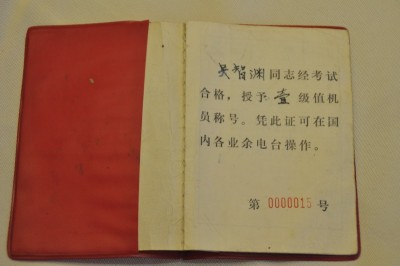 吴智渊同志经考试
合格，授予壹级值机
员称号。凭此证可在国
内各业余电台操作。
第 0000015 号